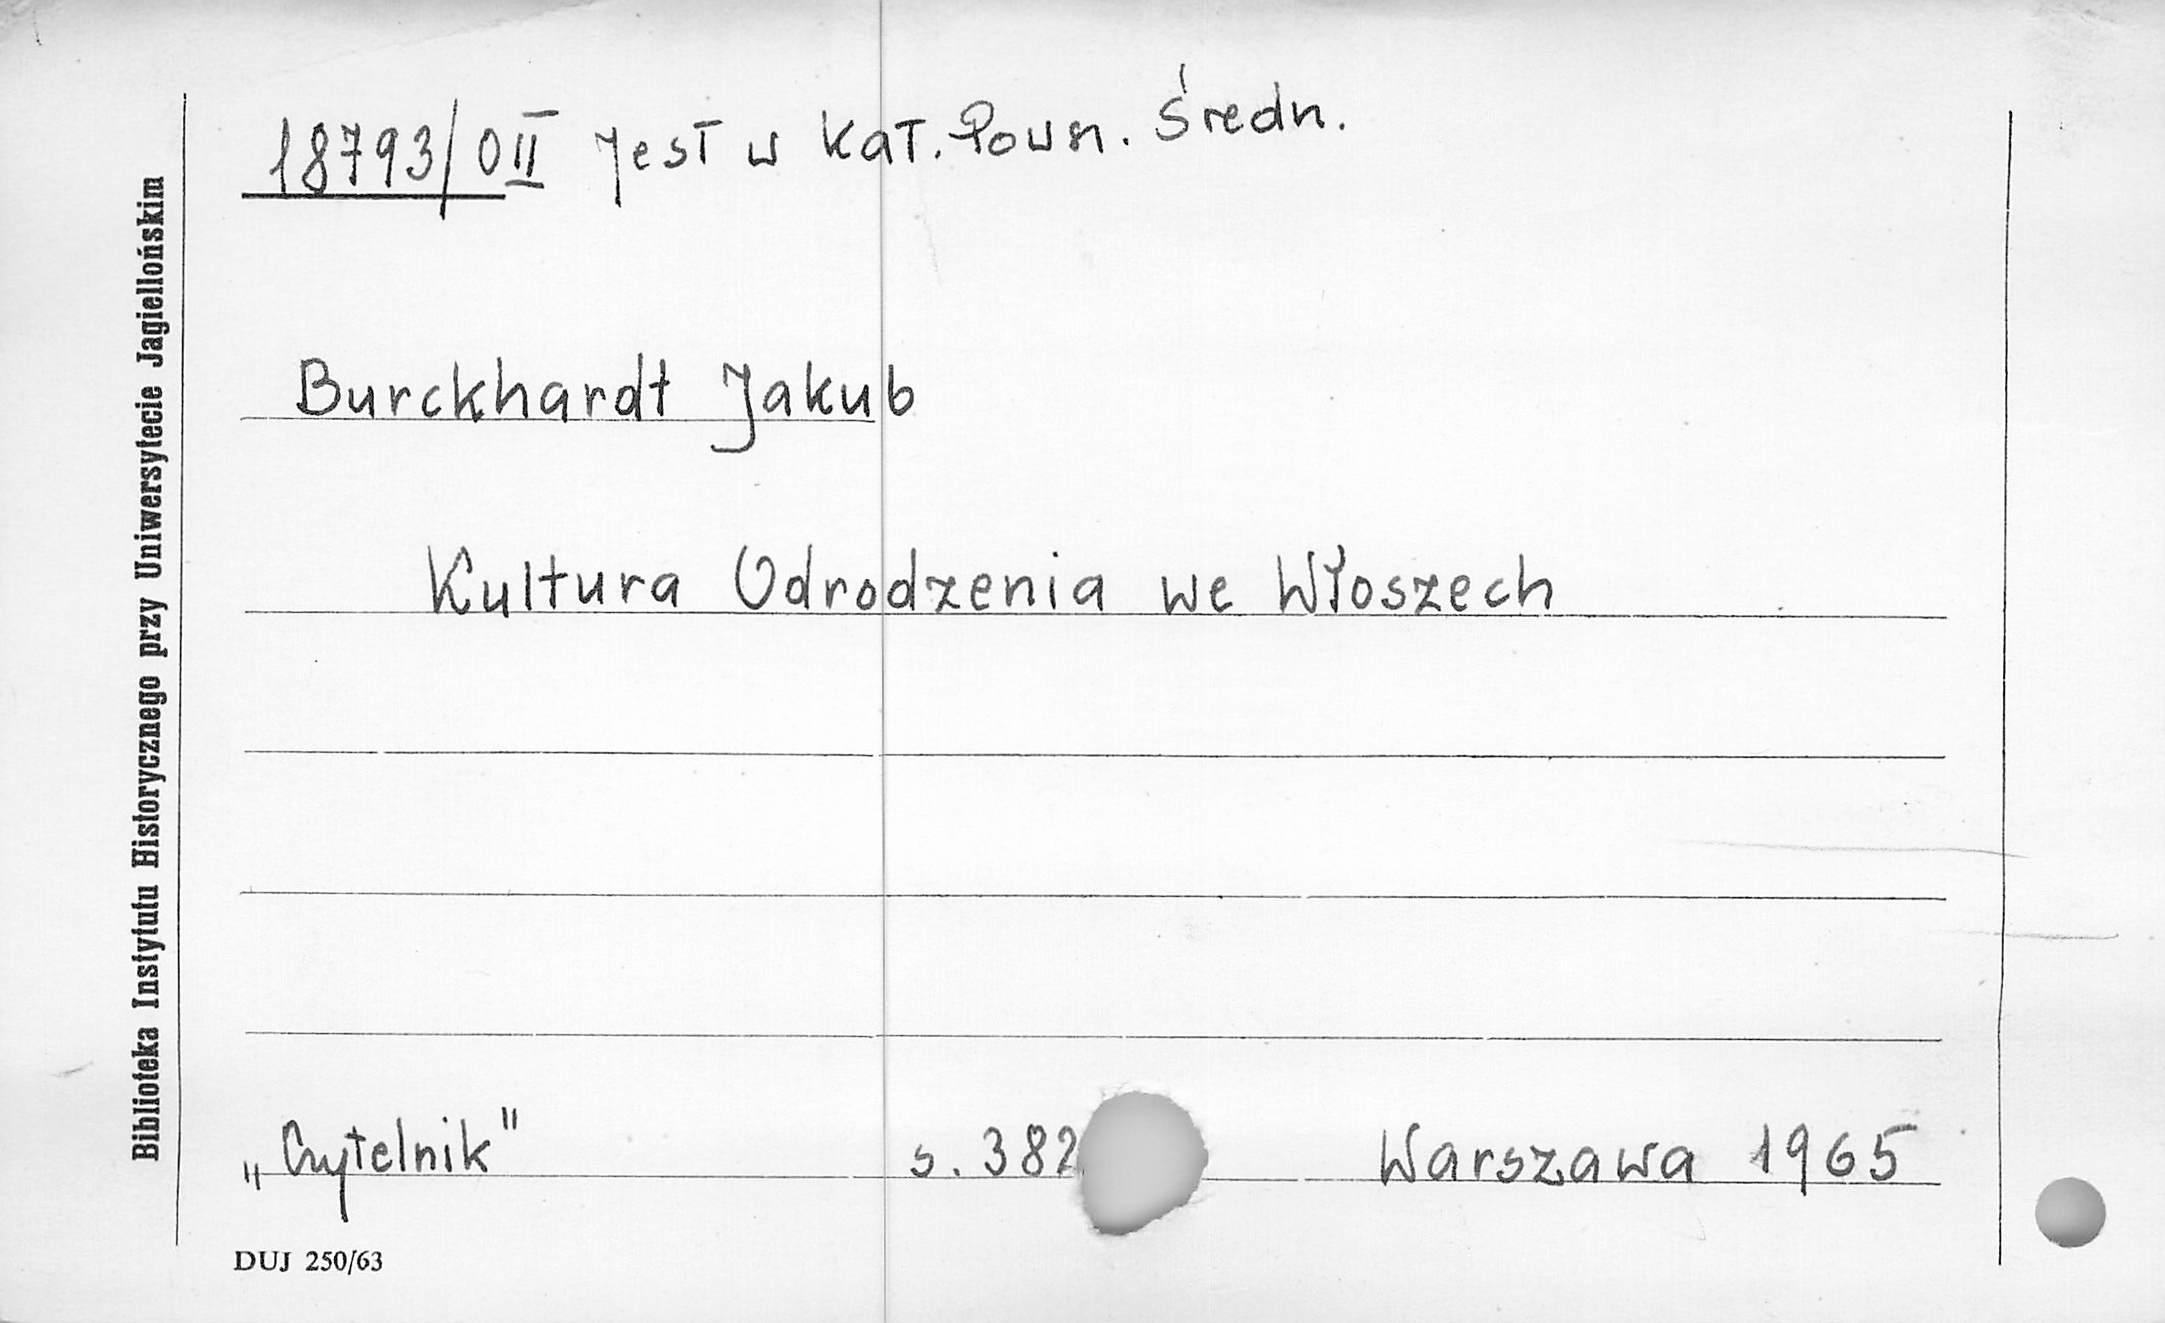 18793/0II Jest w Kat. Pows. Średn.
Burckhardt Jakub
Kultura Odrodzenia we Włoszech
„Czytelnik" s. 382 Warszawa 1965
DUJ 250/63
Biblioteka Instytutu Historycznego przy Uniwersytecie Jagiellońskim